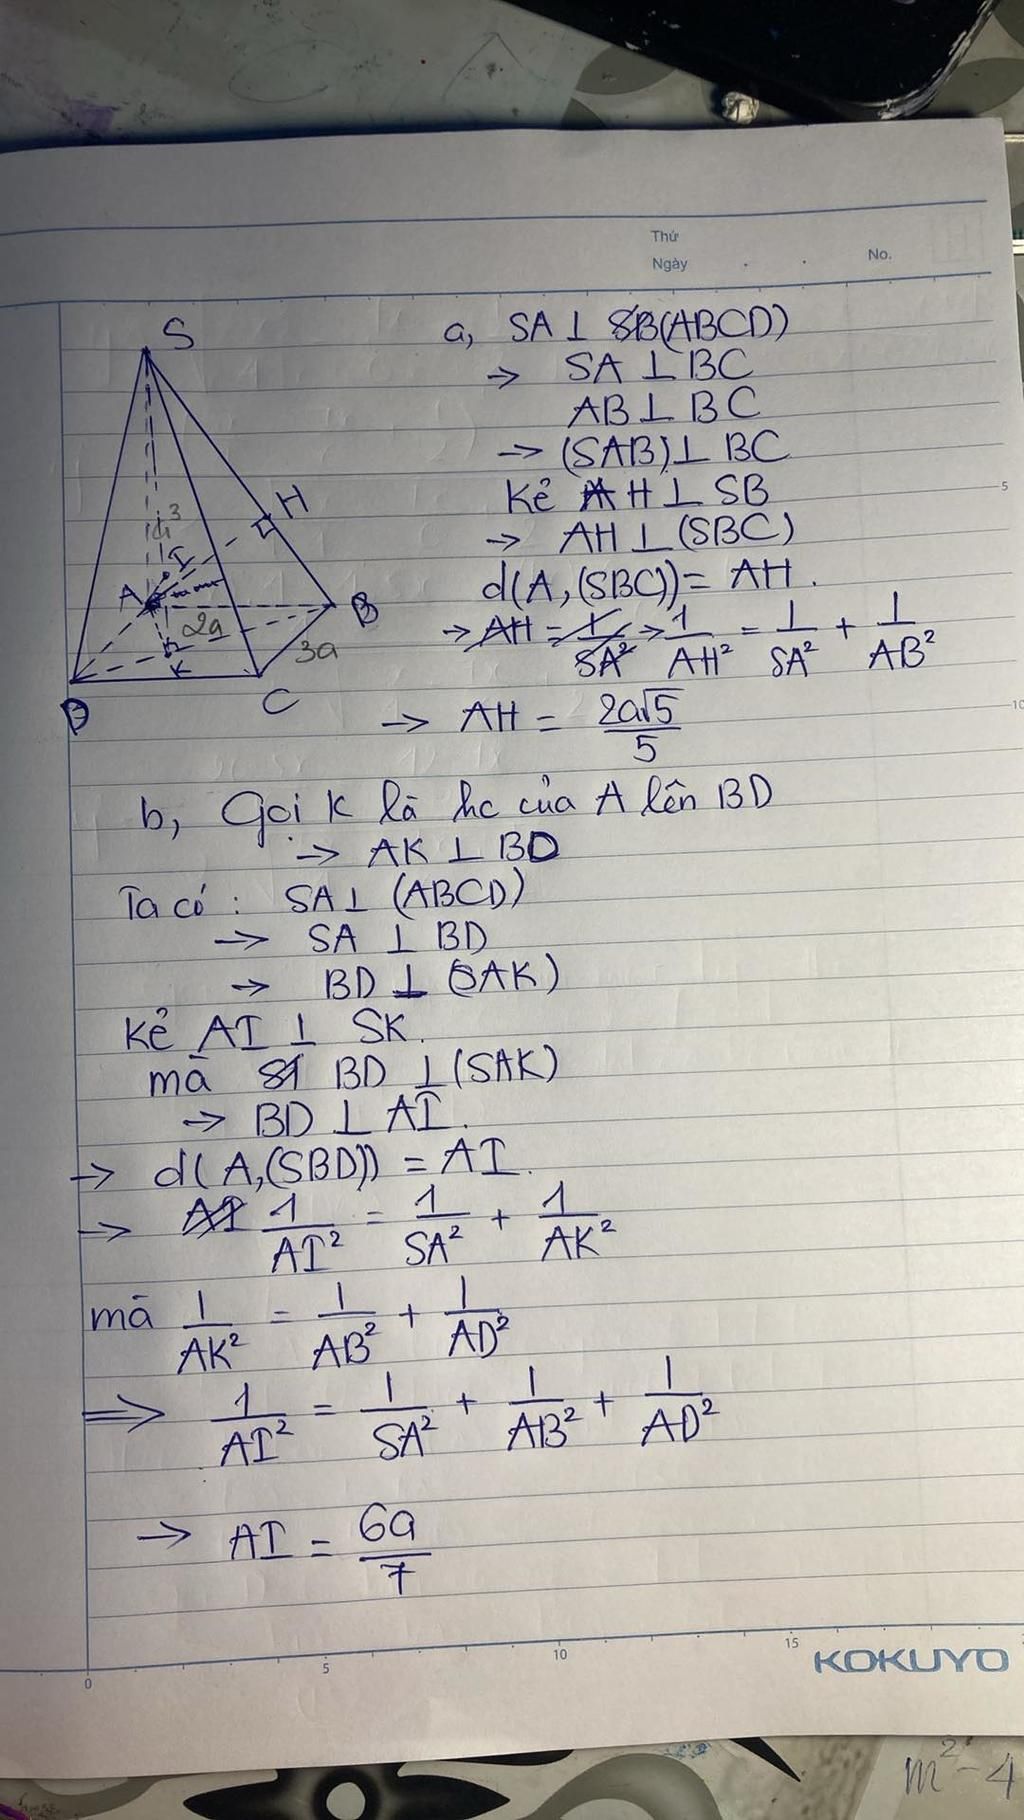 Thứ
Ngày . . No.
S
H
I
A
2a
B
3a
K
D
C
a, SA ⊥ SB(ABCD)
→ SA ⊥ BC
AB ⊥ BC
→ (SAB) ⊥ BC
Kẻ AH ⊥ SB
→ AH ⊥ (SBC)
d(A, (SBC)) = AH.
→ AH = 1/SA² → 1/AH² = 1/SA² + 1/AB²
→ AH = 2a√5/5
b, Gọi K là hc của A lên BD
→ AK ⊥ BD
Ta có : SA ⊥ (ABCD)
→ SA ⊥ BD
→ BD ⊥ (SAK)
Kẻ AI ⊥ SK.
mà SI BD ⊥ (SAK)
→ BD ⊥ AI.
→ d(A,(SBD)) = AI.
→ AI 1/AI² = 1/SA² + 1/AK²
mà 1/AK² = 1/AB² + 1/AD²
⇒ 1/AI² = 1/SA² + 1/AB² + 1/AD²
→ AI = 6a/7
5
10
0 5 10 15
KOKUYO
m² - 4